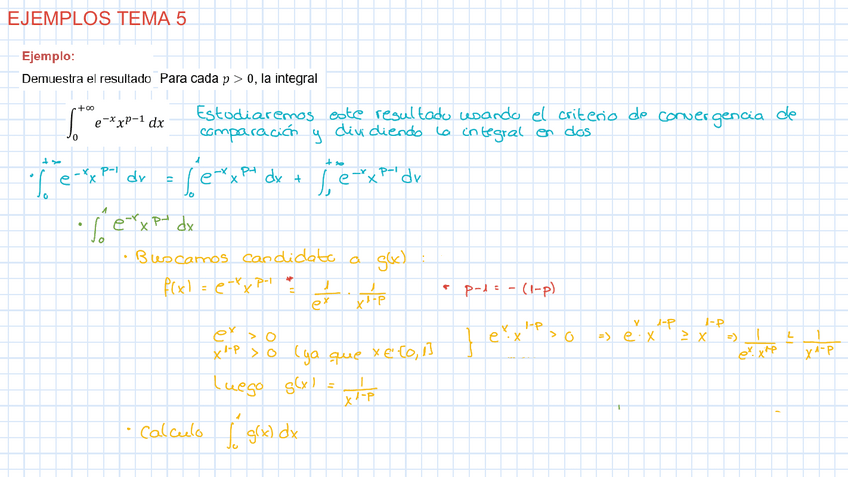 EJEMPLOS TEMA 5
Ejemplo:
Demuestra el resultado Para cada p > 0, la integral
∫₀^{+∞} e^{−x} x^{p−1} dx
Estudiaremos este resultado usando el criterio de convergencia de
comparación y dividiendo la integral en dos
· ∫₀^{+∞} e^{-x} x^{p-1} dx = ∫₀^1 e^{-x} x^{p-1} dx + ∫₁^{+∞} e^{-x} x^{p-1} dx
· ∫₀^1 e^{-x} x^{p-1} dx
· Buscamos candidato a g(x) :
f(x) = e^{-x} x^{p-1} =* 1/e^x · 1/x^{1-p} * p-1 = -(1-p)
e^x > 0
x^{1-p} > 0 (ya que x ∈ [0,1]
} e^x · x^{1-p} > 0 => e^x · x^{1-p} ≥ x^{1-p} => 1/(e^x · x^{1-p}) ≤ 1/x^{1-p}
Luego g(x) = 1/x^{1-p}
· Calculo ∫₀^1 g(x) dx